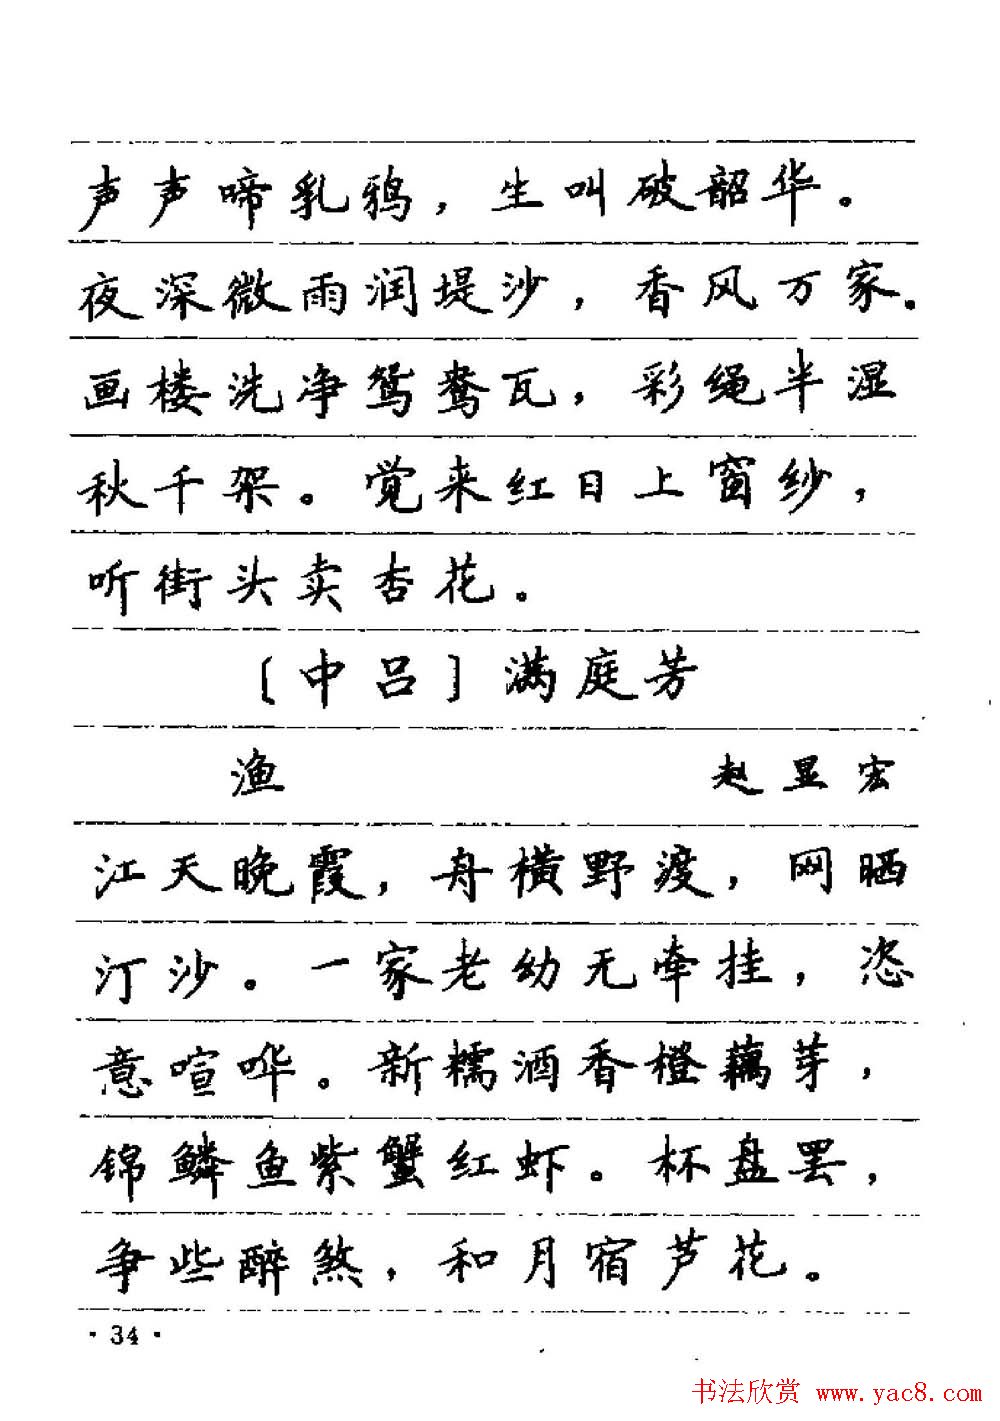 声声啼乳鸦，生叫破韶华。
夜深微雨润堤沙，香风万家。
画楼洗净鸳鸯瓦，彩绳半湿
秋千架。觉来红日上窗纱，
听街头卖杏花。
〔中吕〕满庭芳
渔 赵显宏
江天晚霞，舟横野渡，网晒
汀沙。一家老幼无牵挂，恣
意喧哗。新糯酒香橙藕芽，
锦鳞鱼紫蟹红虾。杯盘罢，
争些醉煞，和月宿芦花。
·34·
书法欣赏 www.yac8.com